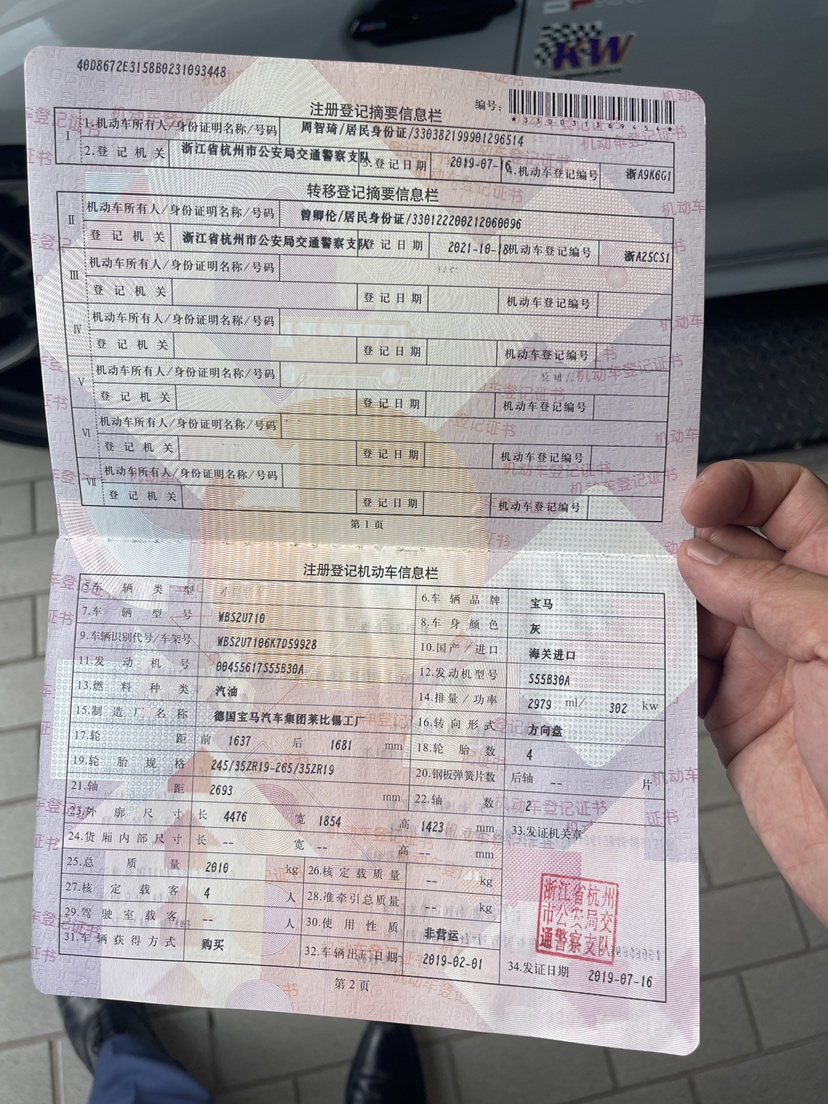 KW
40D8672E3158B0231093448
注册登记摘要信息栏
编号:
I 1.机动车所有人/身份证明名称/号码 周智琦/居民身份证/330382199901296514
2.登记机关 浙江省杭州市公安局交通警察支队 3.登记日期 2019-07-16 4.机动车登记编号 浙A9K6G1
转移登记摘要信息栏
II 机动车所有人/身份证明名称/号码 曾卿伦/居民身份证/330122200212060096
登记机关 浙江省杭州市公安局交通警察支队 登记日期 2021-10-18 机动车登记编号 浙A25CS1
III 机动车所有人/身份证明名称/号码
登记机关 登记日期 机动车登记编号
IV 机动车所有人/身份证明名称/号码
登记机关 登记日期 机动车登记编号
V 机动车所有人/身份证明名称/号码
登记机关 登记日期 机动车登记编号
VI 机动车所有人/身份证明名称/号码
登记机关 登记日期 机动车登记编号
VII 机动车所有人/身份证明名称/号码
登记机关 登记日期 机动车登记编号
第1页
注册登记机动车信息栏
5.车辆类型 6.车辆品牌 宝马
7.车辆型号 WBS2U710 8.车身颜色 灰
9.车辆识别代号/车架号 WBS2U7106K7D59928 10.国产/进口 海关进口
11.发动机号 00455617S55B30A 12.发动机型号 S55B30A
13.燃料种类 汽油 14.排量/功率 2979 ml/ 302 kw
15.制造厂名称 德国宝马汽车集团莱比锡工厂 16.转向形式 方向盘
17.轮距 前 1637 后 1681 mm 18.轮胎数 4
19.轮胎规格 245/35ZR19-265/35ZR19 20.钢板弹簧片数 后轴 -- 片
21.轴距 2693 mm 22.轴数 2
23.外廓尺寸 长 4476 宽 1854 高 1423 mm 33.发证机关章
24.货厢内部尺寸 长 -- 宽 -- 高 -- mm
25.总质量 2010 kg 26.核定载质量 -- kg
27.核定载客 4 人 28.准牵引总质量 -- kg
29.驾驶室载客 -- 人 30.使用性质 非营运
浙江省杭州
市公安局交
通警察支队
31.车辆获得方式 购买 32.车辆出厂日期 2019-02-01 34.发证日期 2019-07-16
第2页